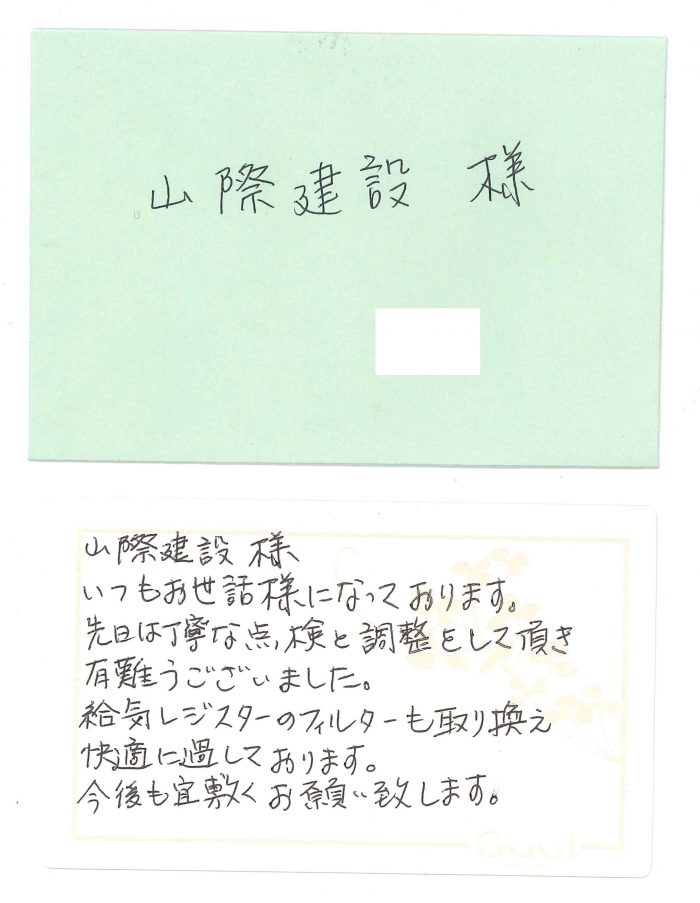 山際建設 様
山際建設 様
いつもお世話様になっております。
先日は丁寧な点検と調整をして頂き
有難うございました。
給気レジスターのフィルターも取り換え
快適に過しております。
今後も宜敷くお願い致します。